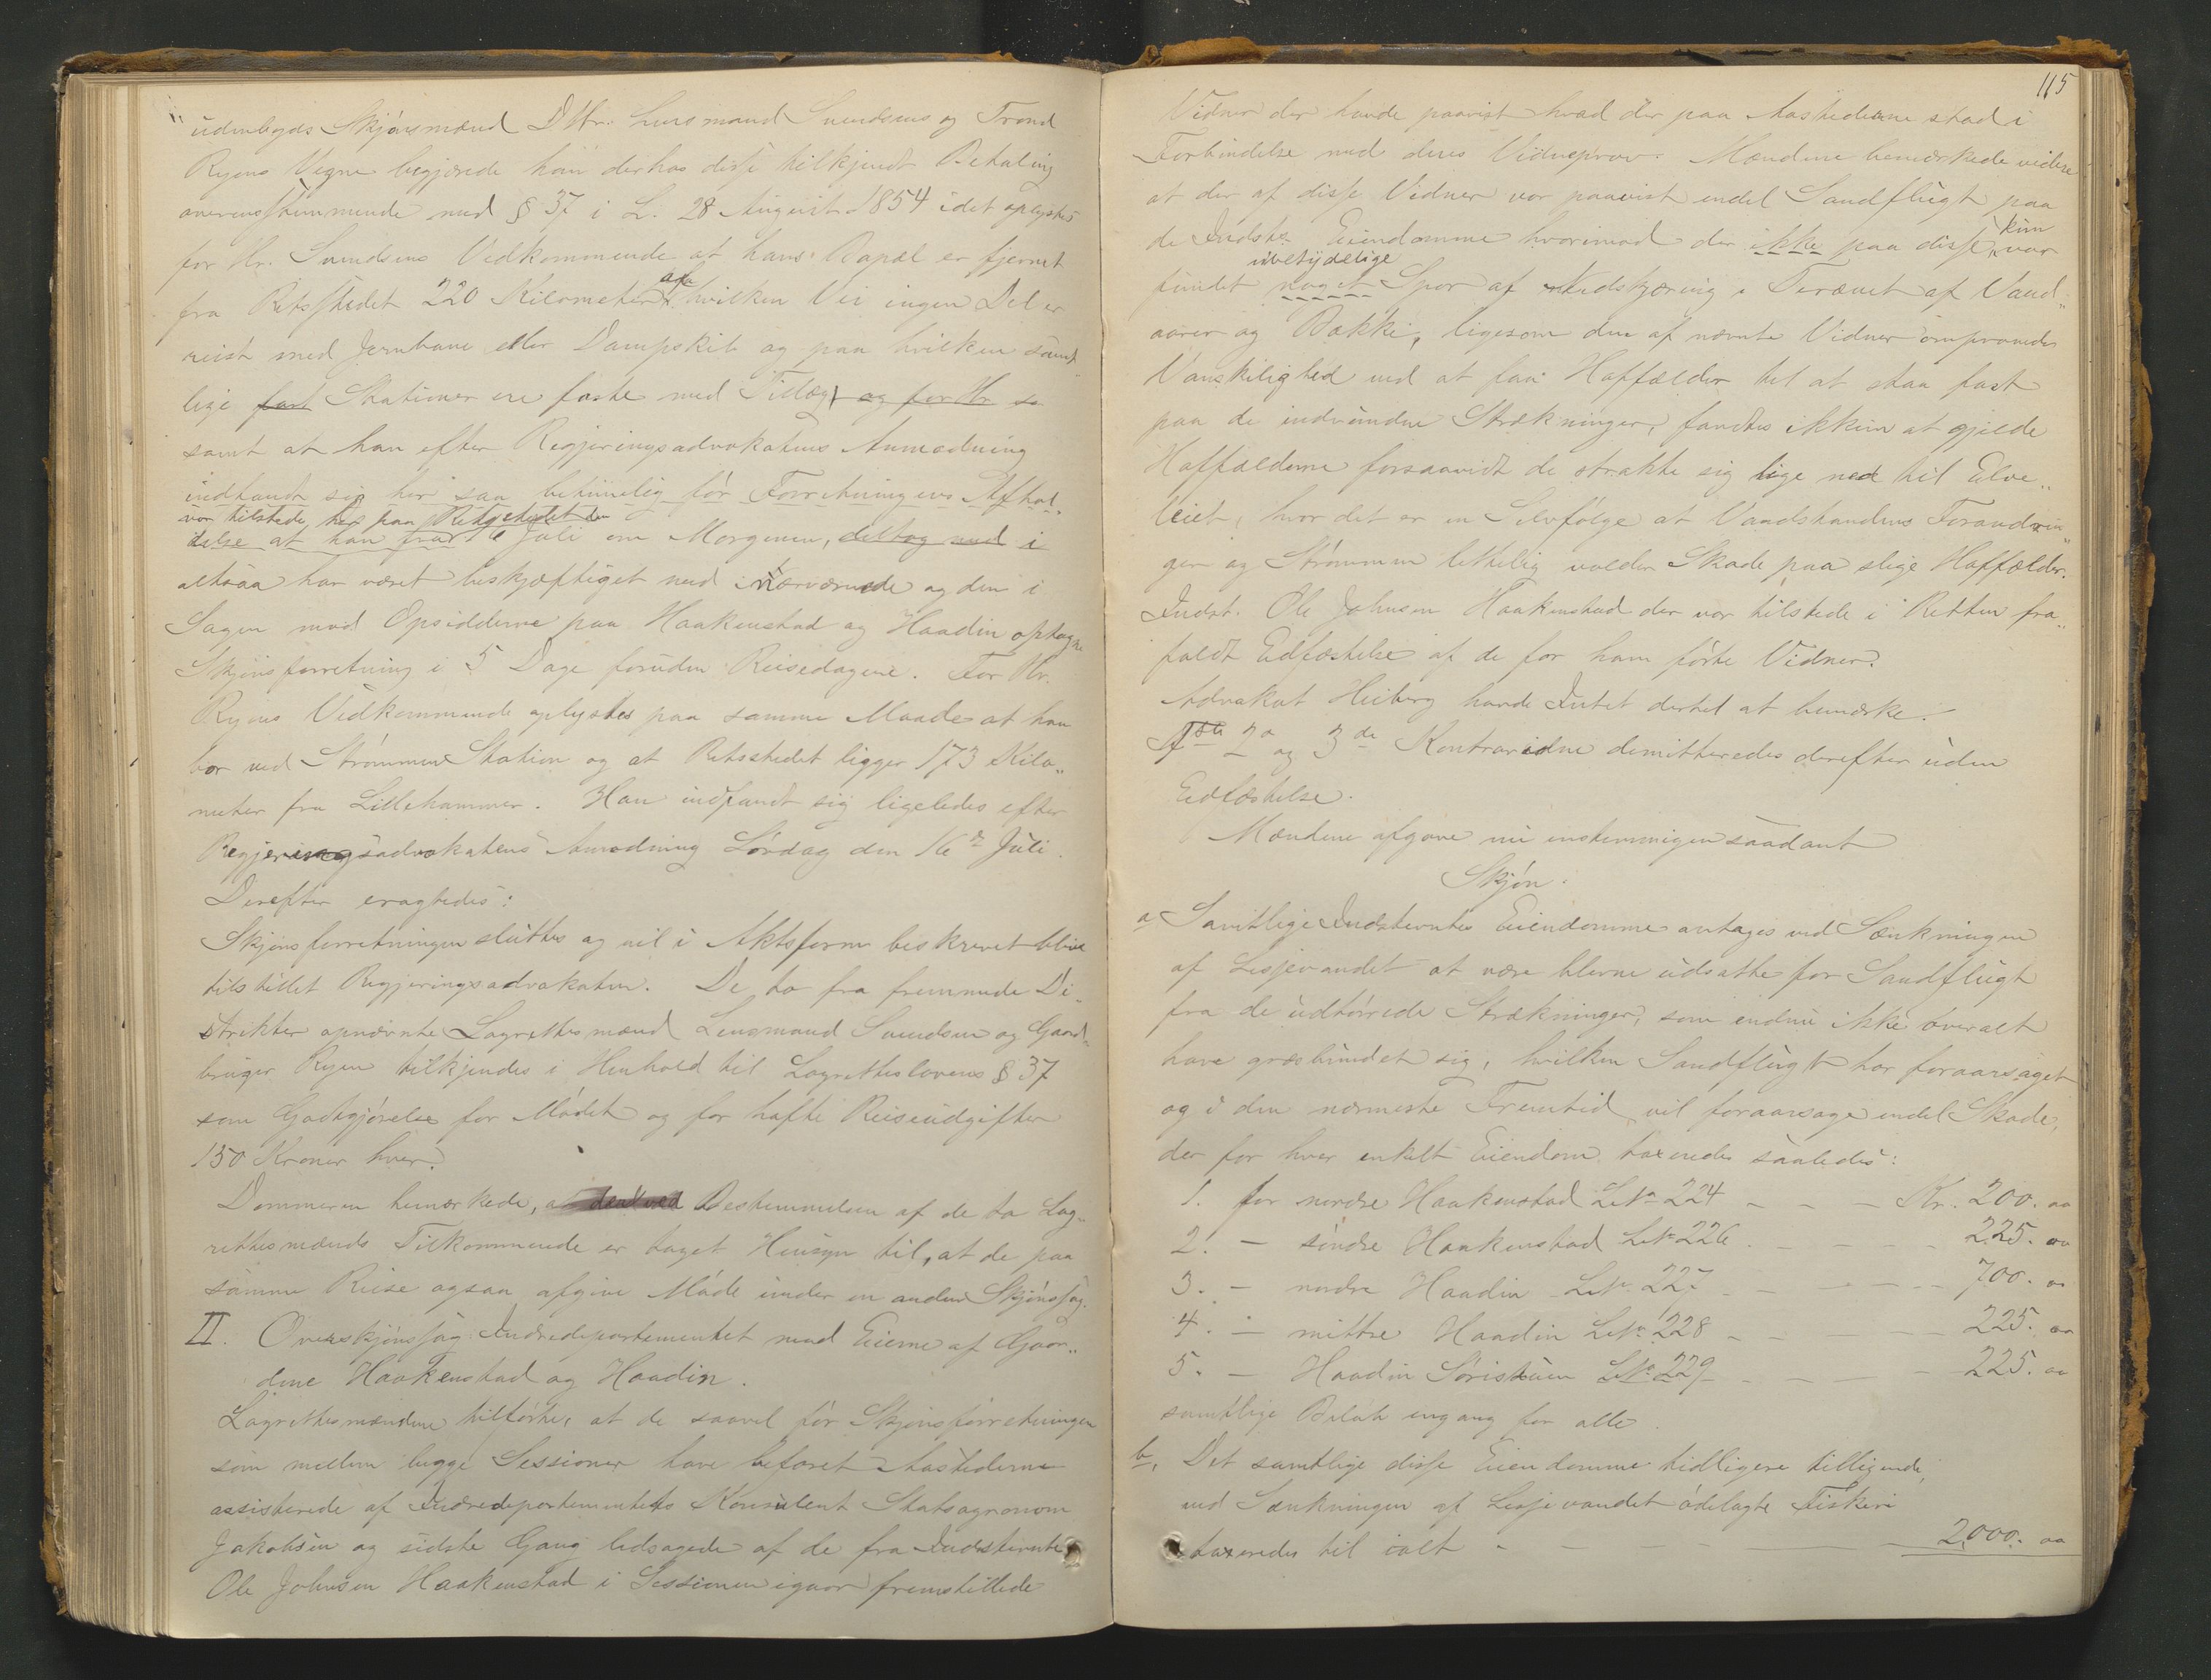 udenbygds Skjønsmænd D'Hr. Lensmand Svendsens og Trond
Ryens Vegne begjærede han derhos disse tilkjendt Betaling
overensstemmende med § 37 i L. 28 August 1854 idet oplystes
for Hr. Svendsens Vedkommende at hans Bopæl er fjernet
fra Retsstedet 220 Kilometer af hvilken Vei ingen Del er
reist med Jernbane eller Dampskib og paa hvilken samt-
lige fast Stationer ere faste med Tillæg og for Hr
samt at han efter Regjeringsadvokatens Anmodning
indfandt sig her saa betimelig før Forretningens Afhol-
var tilstede her paa Retsstedet den
delse at han fra 16 Juli om Morgenen, deltog med i
altsaa har været beskjæftiget med nærværende og den i
Sagen mod Opsidderne paa Haakenstad og Haadin optagne
Skjønsforretning i 5 Dage foruden Reisedagene. For Hr.
Ryens Vedkommende oplystes paa samme Maade at han
bor ved Strømmen Station og at Retsstedet ligger 173 Kilo-
meter fra Lillehammer. Han indfandt sig ligeledes efter
Regjeringsadvokatens Anmodning Lørdag den 16de Juli.
Derefter eragtedes:
Skjønsforretningen sluttes og vil i Aktsform beskrevet blive
tilstillet Regjeringsadvokaten. De to fra fremmede Di-
strikter opnævnte Lagrettesmænd Lensmand Svendsen og Gaard-
bruger Ryen tilkjendes i Henhold til Lagretteslovens § 37
som Godtgjørelse for Mødet og for hafte Reiseudgifter
150 Kroner hver.
Dommeren bemærkede, at ved Bestemmelsen af de to Lag-
rettesmænds Tilkommende er taget Hensyn til, at de paa
samme Reise ogsaa afgive Møde under en anden Skjønssag.
II. Overskjønssag Indredepartementet mod Eierne af Gaar-
dene Haakenstad og Haadin.
Lagrettesmændene tilførte, at de saavel før Skjønsforretningen
som mellem begge Sessioner have befaret Aastederne
assisterede af Indredepartementets Konsulent Statsagronom
Jakobsen og sidste Gang ledsagede af de fra Indstevnte
Ole Johnsen Haakenstad i Sessionen igaar fremstillede
115
Vidner der havde paavist hvad der paa Aastederne stod i
Forbindelse med deres Vidneprov. Mændene bemærkede videre
at der af disse Vidner var paavist endel Sandflugt paa
de Indstes Eiendomme hvorimod der ikke paa disse kun var
ubetydelige
fundet noget Spor af Nedskjæring i Terrænet af Vand-
aarer og Bække, ligesom den af nævnte Vidner omprovede
Vanskelighed ved at faa Haffælder til at staa fast
paa de indvundne Strækninger, fandtes ikkun at gjelde
Haffælderne forsaavidt de strakte sig lige ned til Elve-
leiet, hvor det er en Selvfølge at Vandstandens Forandrin-
ger og Strømmen lettelig volder Skade paa slige Haffælder.
Indst. Ole Johnsen Haakenstad der var tilstede i Retten fra-
faldt Edfæstelse af de for ham førte Vidner.
Advokat Heiberg havde Intet dertil at bemærke.
1ste 2o og 3de Kontravidne demitteredes derefter uden
Edfæstelse.
Mændene afgave nu enstemmigen saadant
Skjøn.
a Samtlige Indstevntes Eiendomme antages ved Sænkningen
af Lesjevandet at være blevne udsatte for Sandflugt
fra de udtørrede Strækninger, som endnu ikke overalt
have græsbundet sig, hvilken Sandflugt har foraarsaget
og i den nærmeste Fremtid vil foraarsage endel Skade,
der for hver enkelt Eiendom taxeredes saaledes:
1. for nordre Haakenstad LNo 224 - - - Kr. 200. oo
2. - søndre Haakenstad LNo 226 - - - 225. oo
3. - nordre Haadin LNo 227 - - - - 700. oo
4. - mittre Haadin LNo 228 - - - - 225. oo
5. - Haadin Søristuen LNo 229 - - - - 225. oo
samtlige Beløb engang for alle.
b, Det samtlige disse Eiendomme tidligere tilliggende,
ved Sænkningen af Lesjevandet ødelagte Fiskeri
taxeredes til ialt - - - 2,000. oo